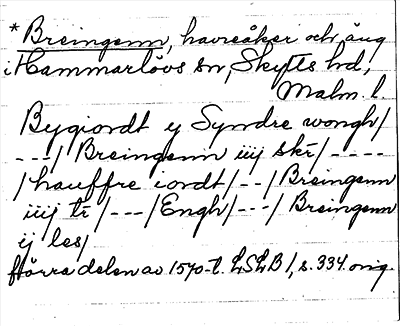 * Breingenn, havreåker och äng
i Hammarlövs sn, Skytts hd,
Malm. l.
Bygiordt y Syndre wongh/
---/ Breingenn iiij skr/ ----
/hauffre iordt/--/ Breingenn
iiij tr/---/Engh/---/ Breingenn
ij les/
förra delen av 1570-t. LSLB 1, s. 334. orig.